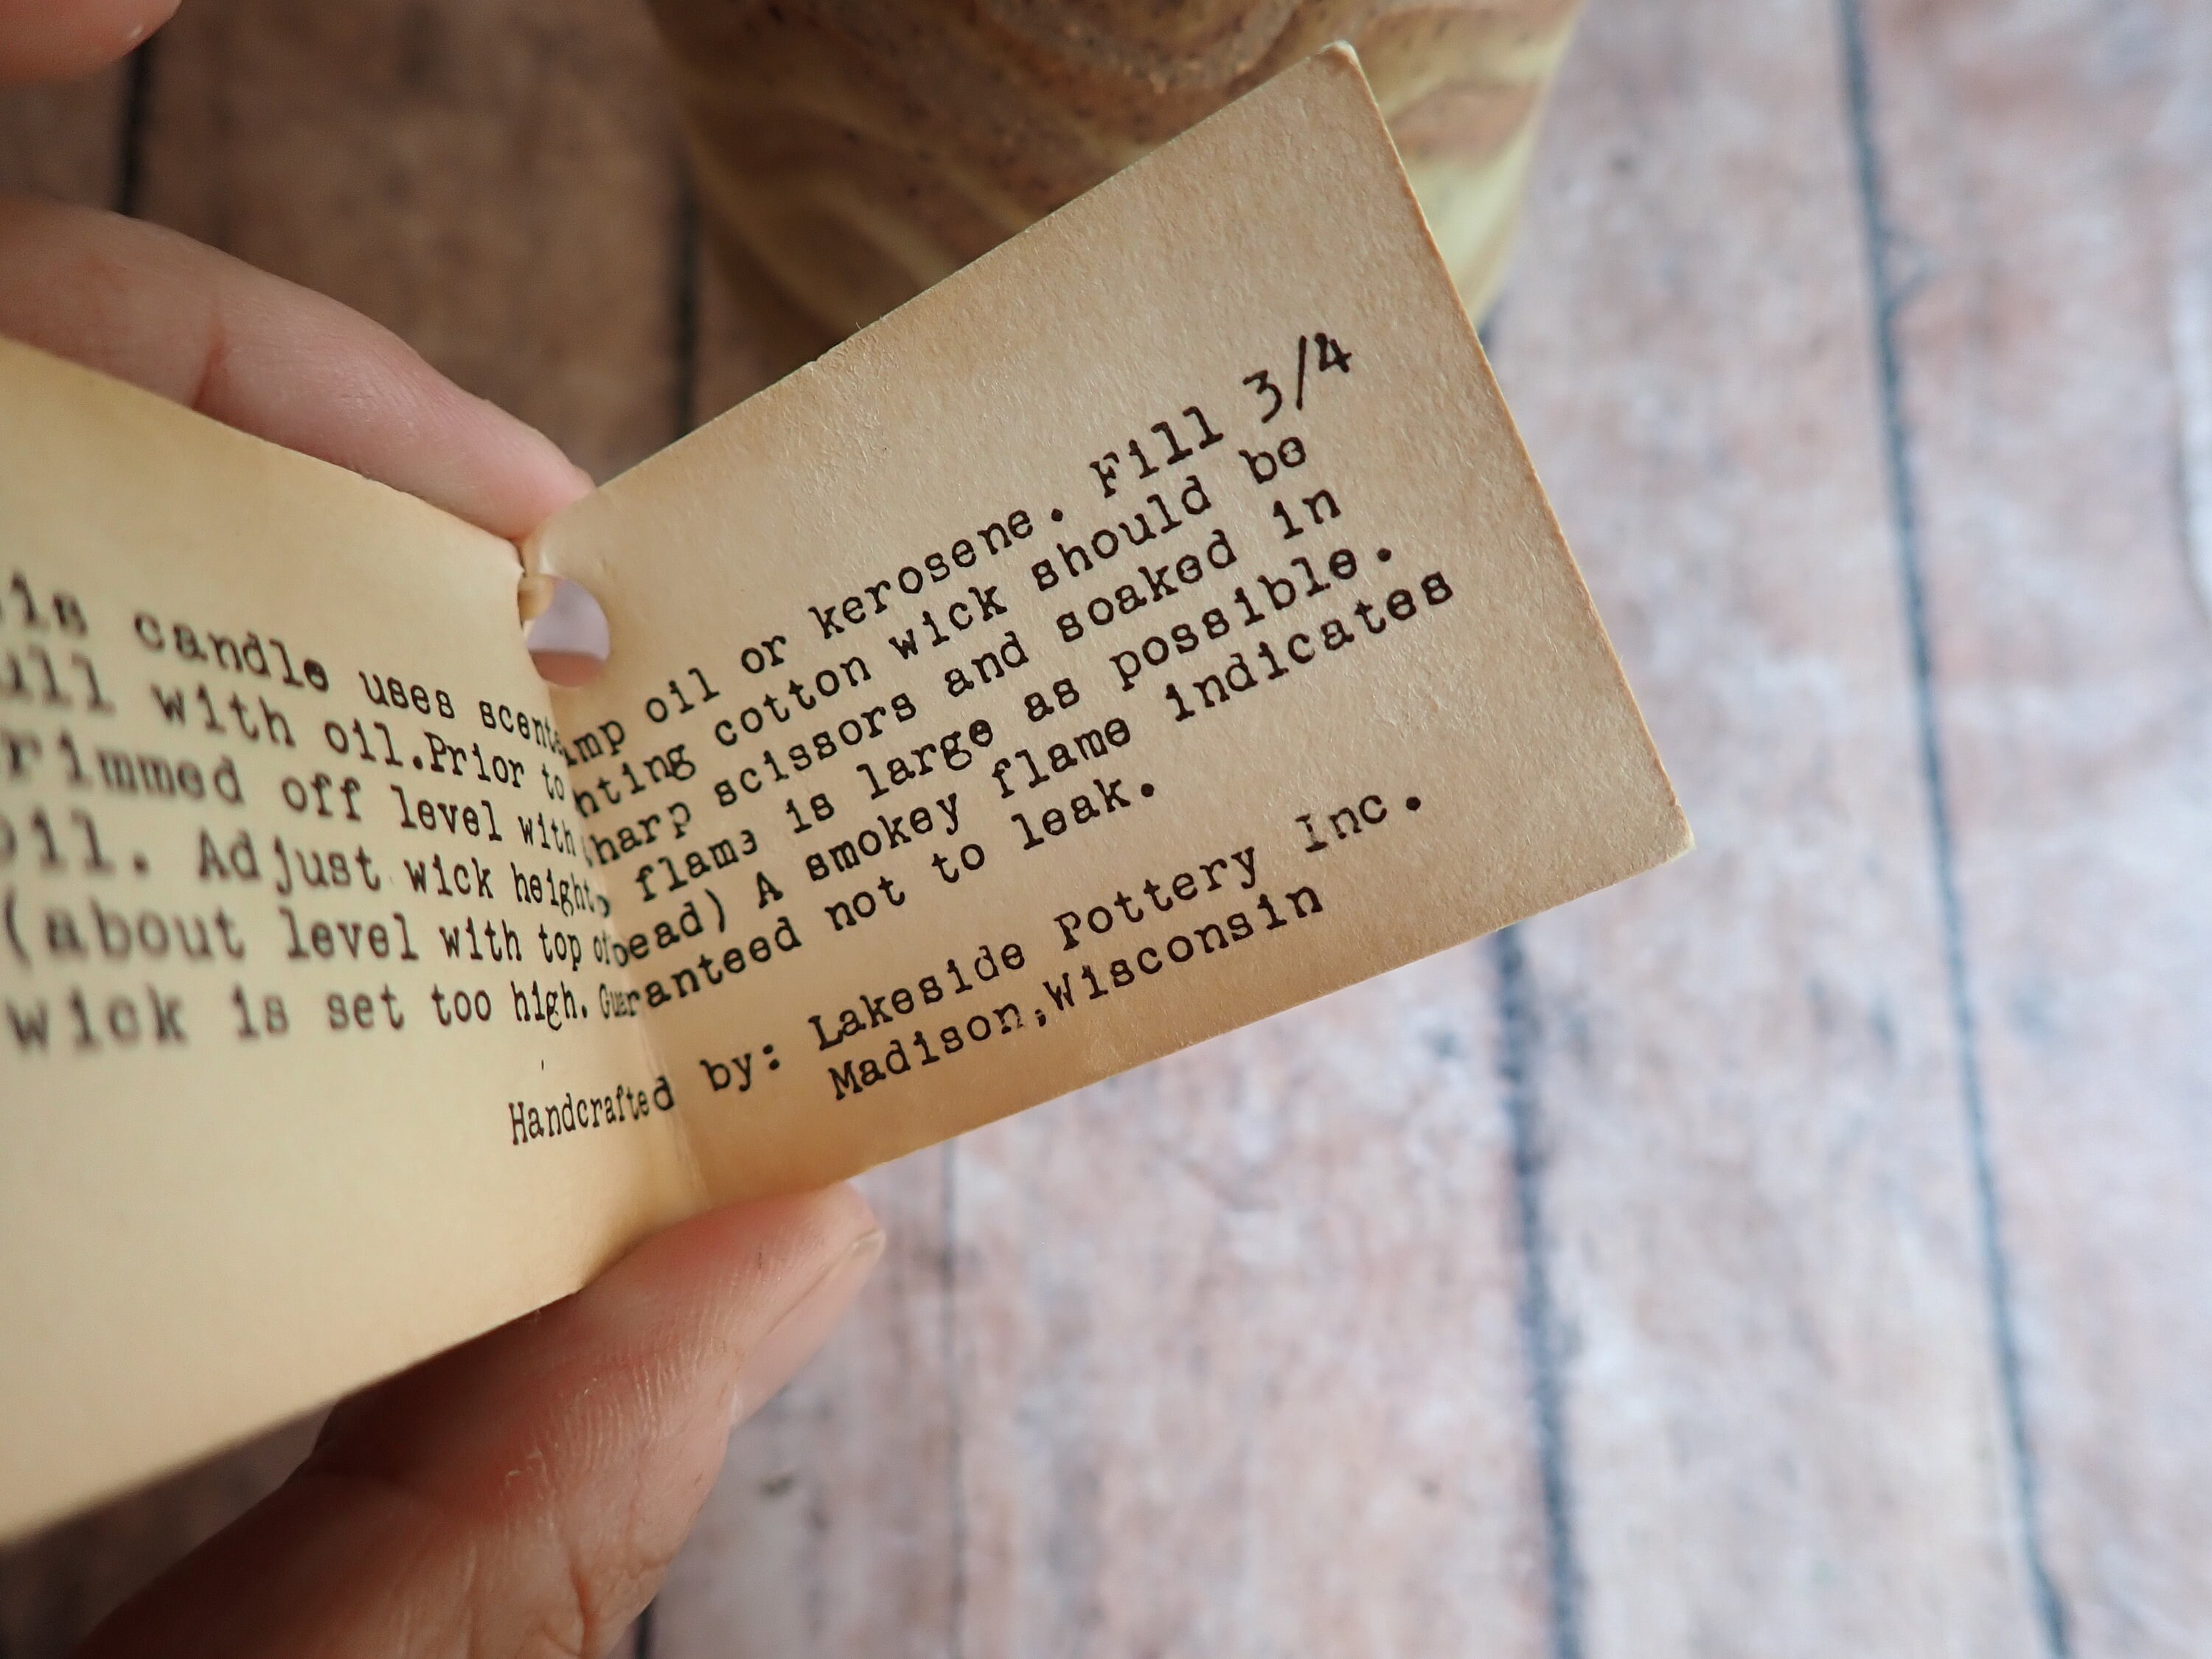 is candle uses scented lamp oil or kerosene. Fill 3/4
ull with oil.Prior to lighting cotton wick should be
rimmed off level with sharp scissors and soaked in
oil. Adjust wick height, flame is large as possible.
(about level with top of bead) A smokey flame indicates
wick is set too high. Guaranteed not to leak.
Handcrafted by: Lakeside Pottery Inc.
Madison,Wisconsin